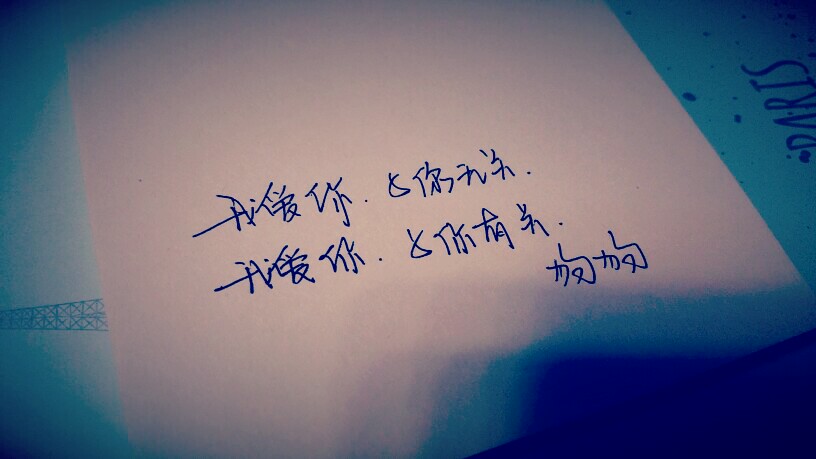 我爱你.与你无关.
我爱你.与你有关.
PARIS